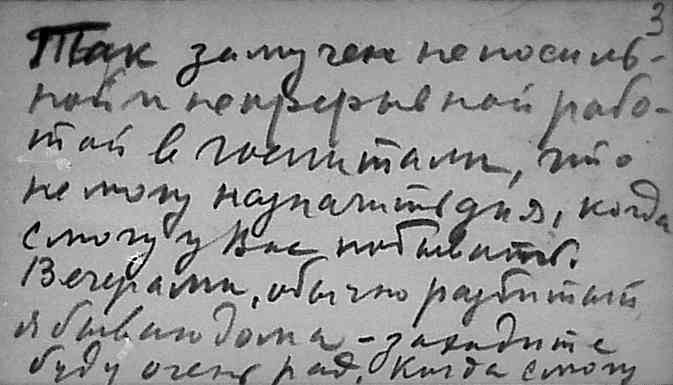 3
Так замучен непосиль-
ной и непрерывной рабо-
той в госпитали, что
не могу назначить дня, когда
смогу у Вас побывать.
Вечерами, обычно разбитый
я бываю дома - заходите
буду очень рад. Когда смогу